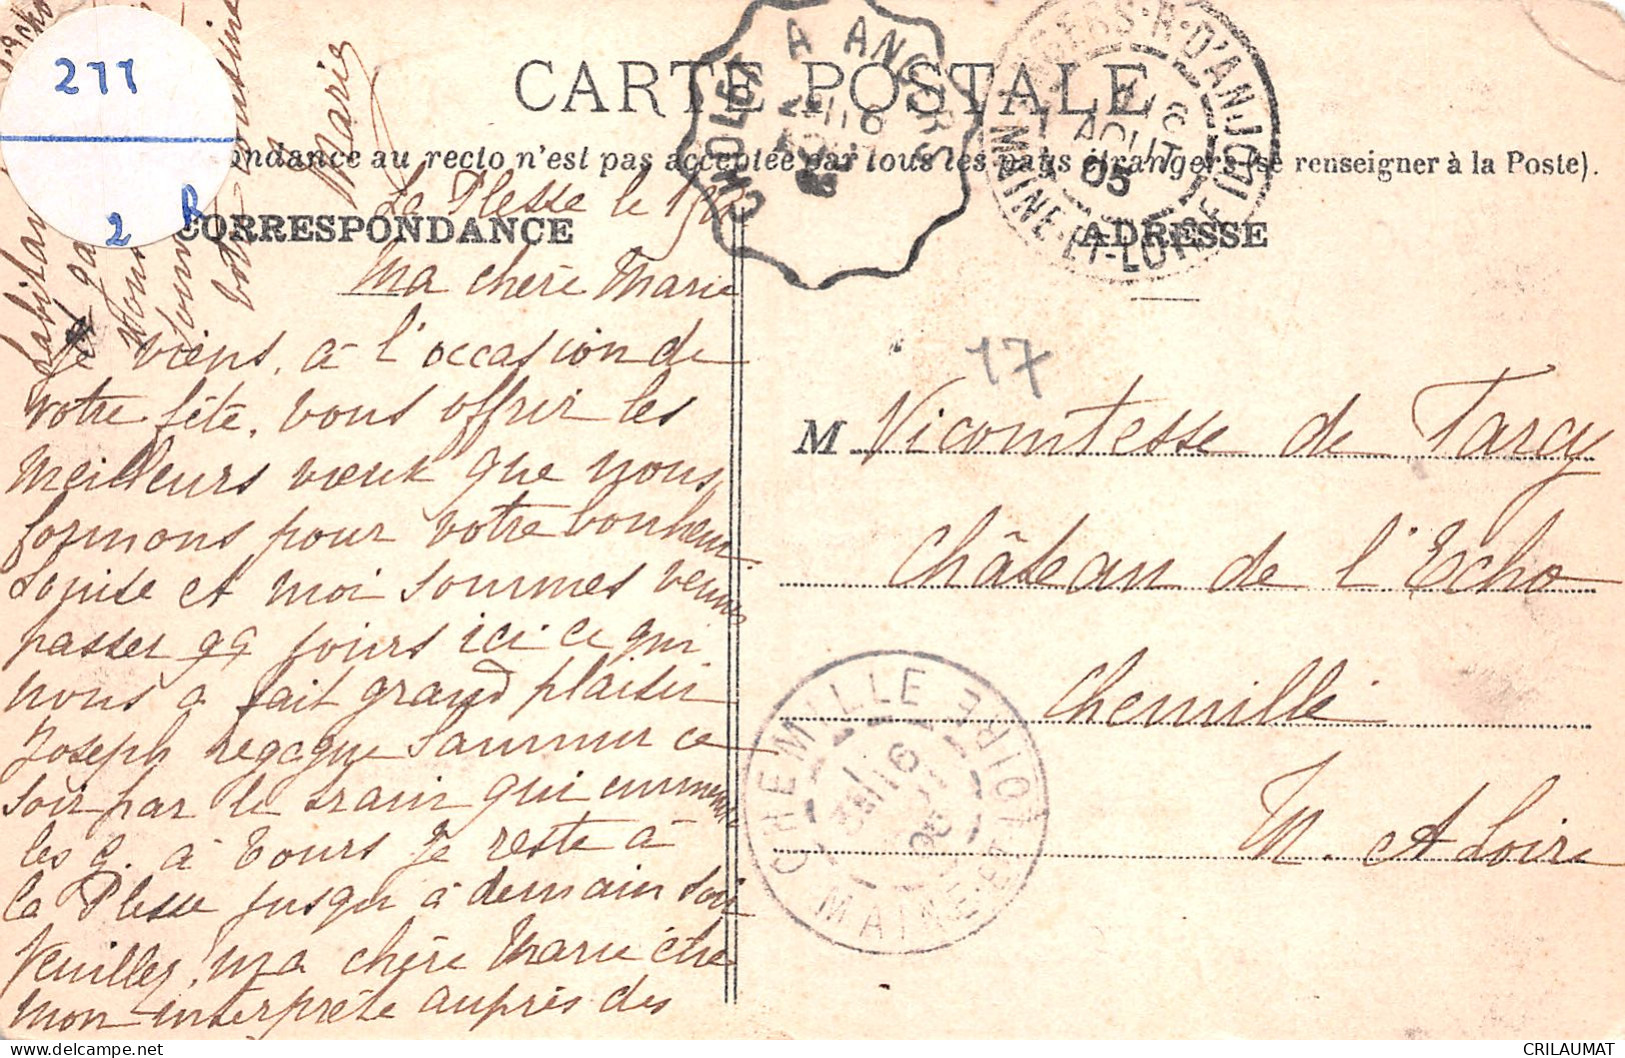 277
2 R
CARTE POSTALE
ondance au recto n'est pas acceptée par tous les pays étrangers (se renseigner à la Poste).
CORRESPONDANCE
ADRESSE
CHOLET A ANGERS
ANGERS-R-D'ANJOU
MAINE-ET-LOIRE
AOUT
05
La Plesse le
Ma chère Marie
Je viens, à l'occasion de
votre fête, vous offrir les
meilleurs vœux que nous
formons pour votre bonheur
Louise et moi sommes venues
passer qq jours ici ce qui
nous a fait grand plaisir
Joseph regagne Saumur ce
soir par le train qui
les g. à Tours Je reste à
la Plesse jusqu'à demain soir
Veuillez, ma chère Marie être
mon interprète auprès des
votre cousine
Marie
17
M Vicomtesse de Tarcy
Château de l'Echo
Chemillé
M. et Loire
CHEMILLE
MAINE-ET-LOIRE
CRILAUMAT